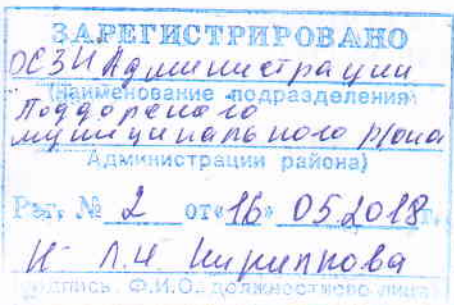 ЗАРЕГИСТРИРОВАНО
ОСЗН Администрации
(наименование подразделения
Поддорского
муниципального р/она
Администрации района)
Рег. № 2 от «16» 05.2018г.
Л.Н. Кириллова
(подпись, Ф.И.О. должностного лица)